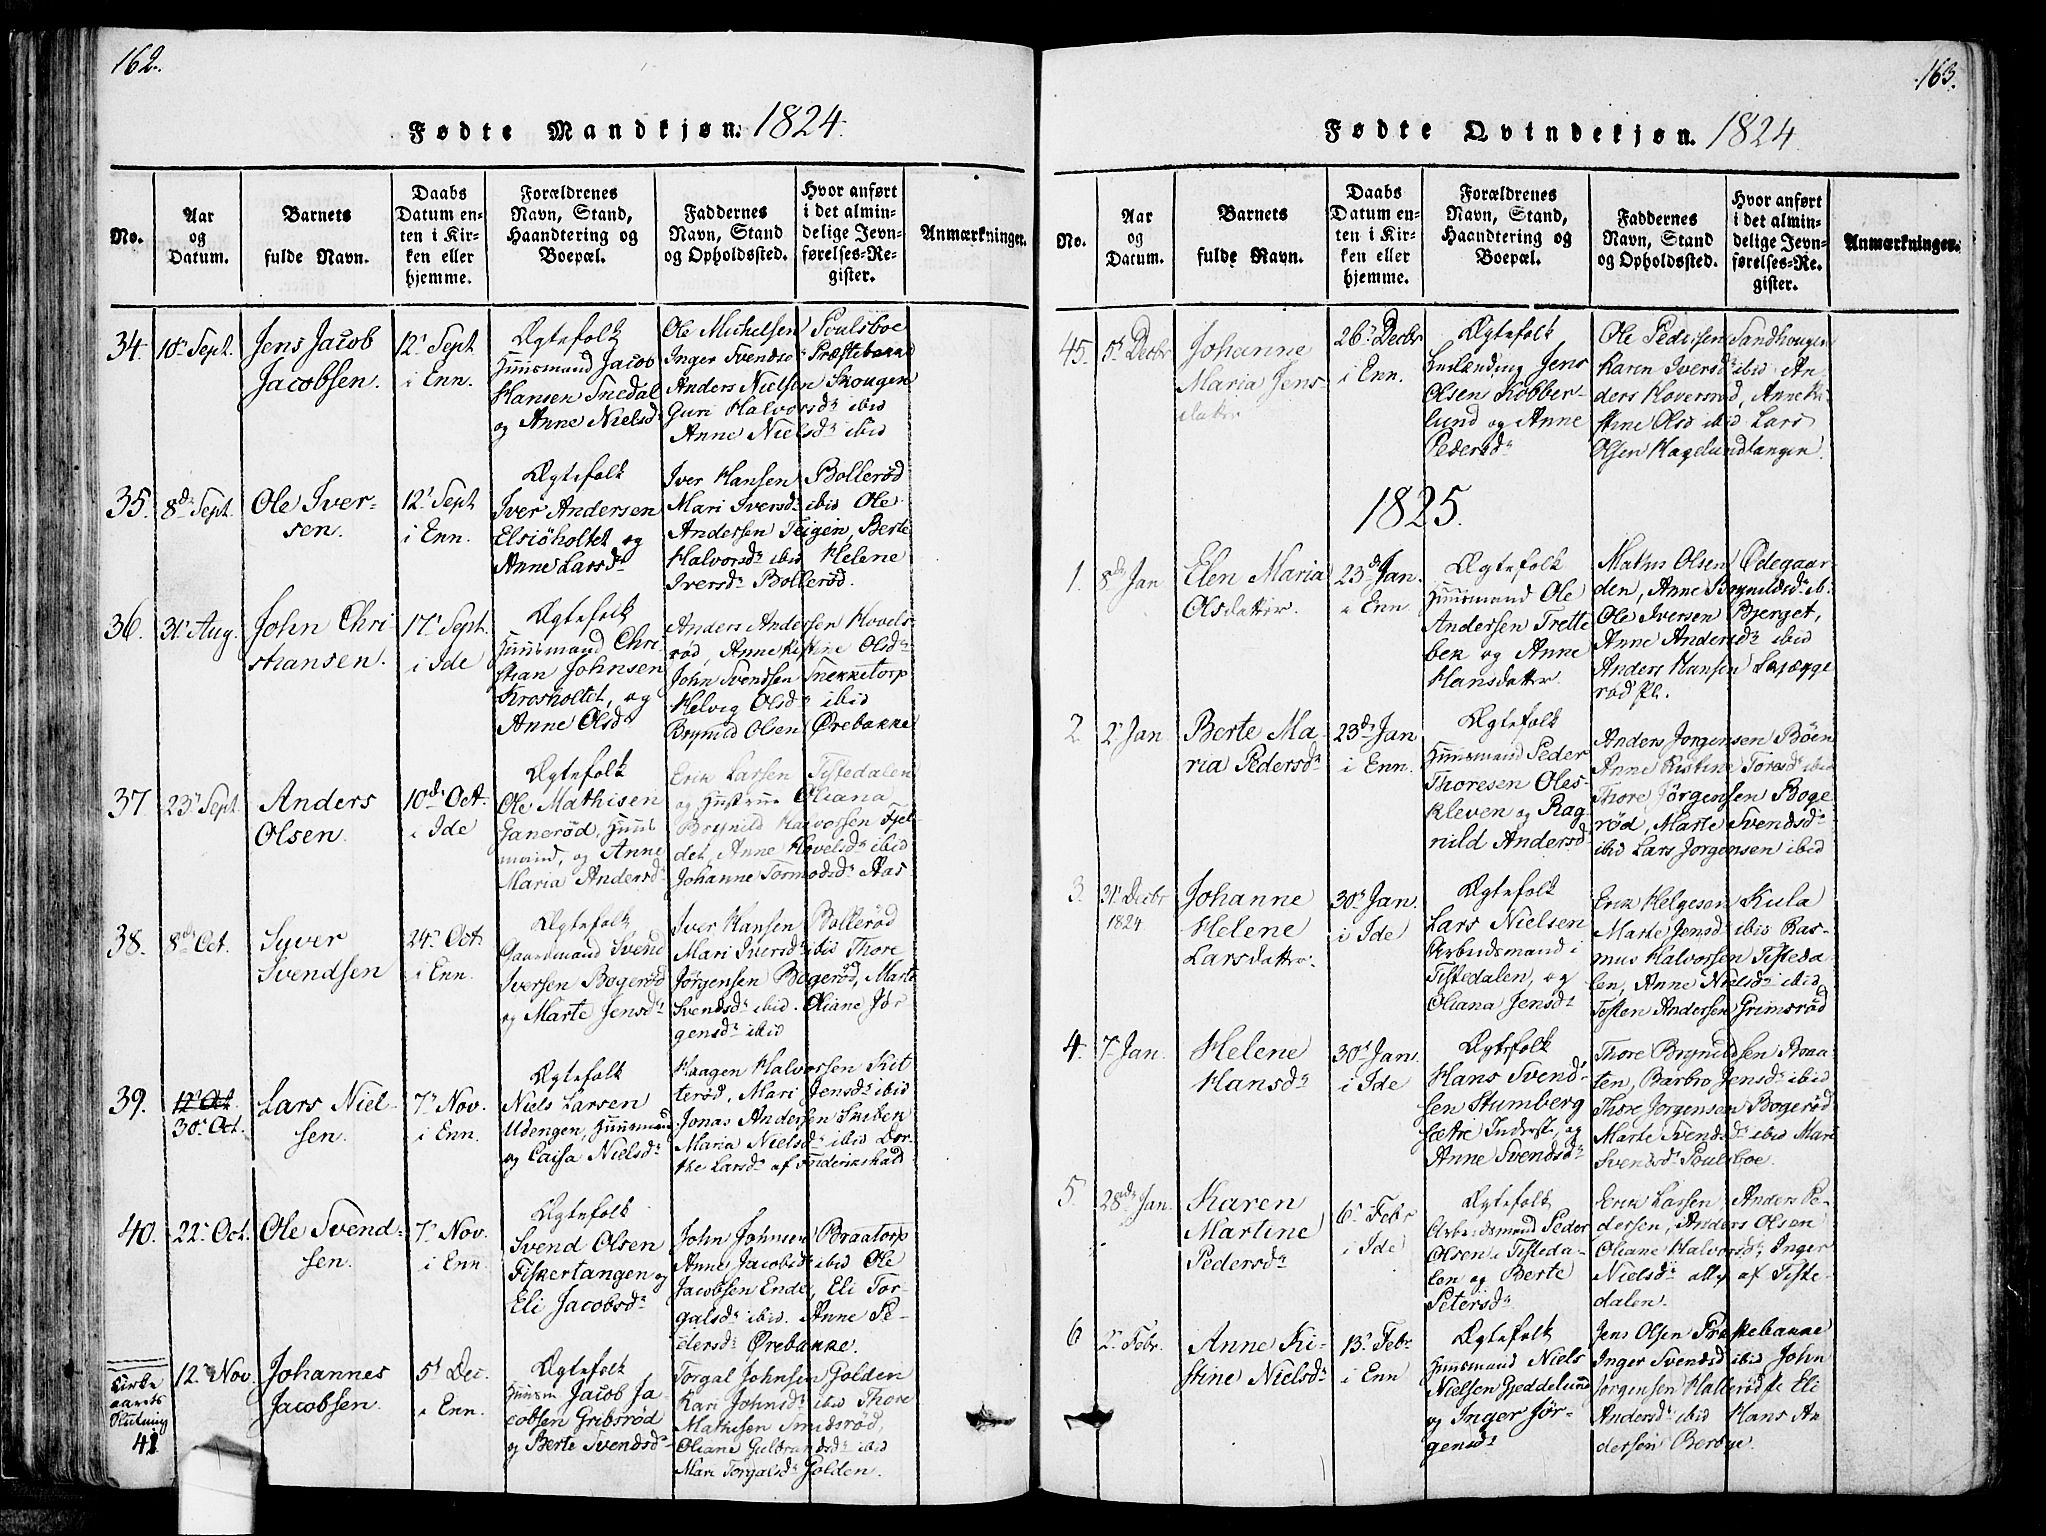 162.
Fødte Mandkjøn. 1824.
No.
Aar
og
Datum.
Barnets
fulde Navn.
Daabs
Datum en-
ten i Kir-
ken eller
hjemme.
Forældrenes
Navn, Stand,
Haandtering og
Boepæl.
Faddernes
Navn, Stand
og Opholdssted.
Hvor anført
i det almin-
delige Jevn-
førelses-Re-
gister.
Anmærkninger.
34.
10. Sept.
Jens Jacob
Jacobsen.
12t Sept
i Enn.
Ægtefolk
Huusmand Jacob
Hansen Snedal
og Anne Nielsd.
Ole Michelsen Poulsboe
Inger Svendsd. Præstebakke
Anders Nielsen Skougen
Guri Halvorsdr ibid
Anne Nielsdr ibid
35.
8de Sept.
Ole Iver-
sen.
12t Sept
i Enn.
Ægtefolk
Iver Andersen
Elsiøholtet og
Anne Larsdr
Iver Hansen Bollerød
Mari Iversdr ibid Ole
Andersen Teigen, Berte
Halvorsdr ibid Helene
Iversdr Bollerød.
36.
31t Aug.
John Chri
stiansen.
17t Sept.
i Ide
Ægtefolk
Huusmand Chri-
stian Johnsen
Krosholtet, og
Anne Olsdr
Anders Andersen Hovels-
rød, Anne Kistine Olsdr
John Svendsen Snekketorp
Helvig Olsdr ibid
Brynild Olsen Ørebakke
37.
23t Sept.
Anders
Olsen.
10de Oct.
i Ide
Ægtefolk
Ole Mathisen
Ganerød, Huus
mand, og Anne
Maria Andersdr
Erik Larsen Tistedalen
og Hustrue Oliana
Brynild Halvorsen Fjel-
det, Anne Hovelsdr ibid
Johanne Tormodsdr Aas
38.
8de Oct.
Syver
Svendsen
24. Oct
i Enn.
Ægtefolk
Gaardmand Svend
Iversen Bogerød
og Marte Jensdr
Iver Hansen Bollerød
Mari Iversdr ibid Thore
Jørgensen Bogerød, Marte
Svendsdr ibid. Oliane Jør
gensdr ibid
39.
12t Oct.
30t Oct.
Lars Niel-
sen.
7. Nov.
i Enn.
Ægtefolk
Niels Larsen
Udengen, Huusmand
og Caisa Nielsdr
Haagen Halvorsen Kit
terød, Mari Jensdr ibid
Jonas Andersen Skiben
Maria Nielsdr ibid Dor-
the Larsdr af Friderikshald
40.
22. Oct.
Ole Svend-
sen.
7. Nov.
i Enn.
Ægtefolk
Svend Olsen
Fiskertangen og
Eli Jacobsdr
John Johnsen Braatorp
Anne Jacobsdr ibid Ole
Jacobsen Ende, Eli Tor-
galsdr ibid. Anne Pe-
dersdr Ørebakke.
Kirke
aarets
Slutning
41
12. Nov.
Johannes
Jacobsen.
5t Dec.
i Enn.
Ægtefolk
Huusm Jacob Ja-
cobsen Gribsrød
og Berte Svendsdr
Torgal Johnsen Golden
Kari Johnsdr ibid Thore
Mathisen Smidsrød,
Oliane Gulbrandsdr ibid
Mari Torgalsdr Golden.
163.
Fødte Qvindekjøn. 1824.
No.
Aar
og
Datum.
Barnets
fulde Navn.
Daabs
Datum en-
ten i Kir-
ken eller
hjemme.
Forældrenes
Navn, Stand,
Haandtering og
Boepæl.
Faddernes
Navn, Stand
og Opholdssted.
Hvor anført
i det almin-
delige Jevn-
førelses-Re-
gister.
Anmærkninger.
45.
5t Decbr
Johanne
Maria Jens
datter
26t Decbr
i Enn.
Ægtefolk
Jens
Olsen Kobber-
lund og Anne
Pedersdr
Ole Pedersen Sandhougen
Karen Iversdr ibid An
ders Hoversrød, Anne Ki
stine Olsd ibid Lars
Olsen Hagelundtangen.
1825.
1.
8de Jan
Elen Maria
Olsdatter.
23de Jan.
i Enn
Ægtefolk
Huusmand Ole
Andersen Trette
bek og Anne
Hansdatter
Mathis Olsen Ødegaar-
den, Anne Brynildsdr ib.
Ole Iversen Bjerget,
Anne Andersdr ibid
Anders Hansen
rød Pl.
2
2. Jan
Berte Ma-
ria Pedersdr
23de Jan
i Enn.
Ægtefolk
Huusmand Peder
Thoresen Oles-
kleven og Rag
nild Andersd
Anders Jørgensen Böen
Anne Kistine Toresdr ibid
Thore Jørgensen Boge-
rød, Marte Svendsdr
ibid Lars Jørgensen ibid
3.
31t Decbr
1824
Johanne
Helene
Larsdatter.
30t Jan.
i Ide
Ægtefolk
Lars Nielsen
Arbeidsmand i
Tistedalen, og
Oliana Jensdr
Erik Helgesen Kula
Marte Jensdr ibid Ras-
mus Halvorsen Tisteda-
len, Anne Nielsdr ibid,
Testen Andersen Grimsrød
4.
7. Jan.
Helene
Hansdr
30t Jan.
i Ide
Ægtefolk
Hans Svend-
sen Stumberg
sætre Inderst, og
Anne Svendsdr
Thore Brynildsen Braa-
ten, Barbro Jensdr ibid
Thore Jørgensen Bogerød
Marte Svendsdr ibid Mari
Svendsdr Poulsboe.
5.
28de Jan.
Karen
Martine
Pedersdr
6t Febr
i Ide
Ægtefolk
Arbeidsmand Peder
Olsen i Tisteda-
len og Berte
Petersdr
Erik Larsen, Anders Pe-
dersen, Anders Olsen
Oliane Halvorsdr, Inger
Nielsdr alle af Tiste-
dalen.
6
2. Febr.
Anne Ki-
stine Nielsdr
13t Febr
i Enn
Ægtefolk
Huusmand Niels
Nielsen Gjeddelund
og Inger Jør-
gensdr
Jens Olsen Præstebakke
Inger Svendsd ibid John
Jørgensen Hallerød Eli
Andersdr ibid Hans An
dersen Berbye.